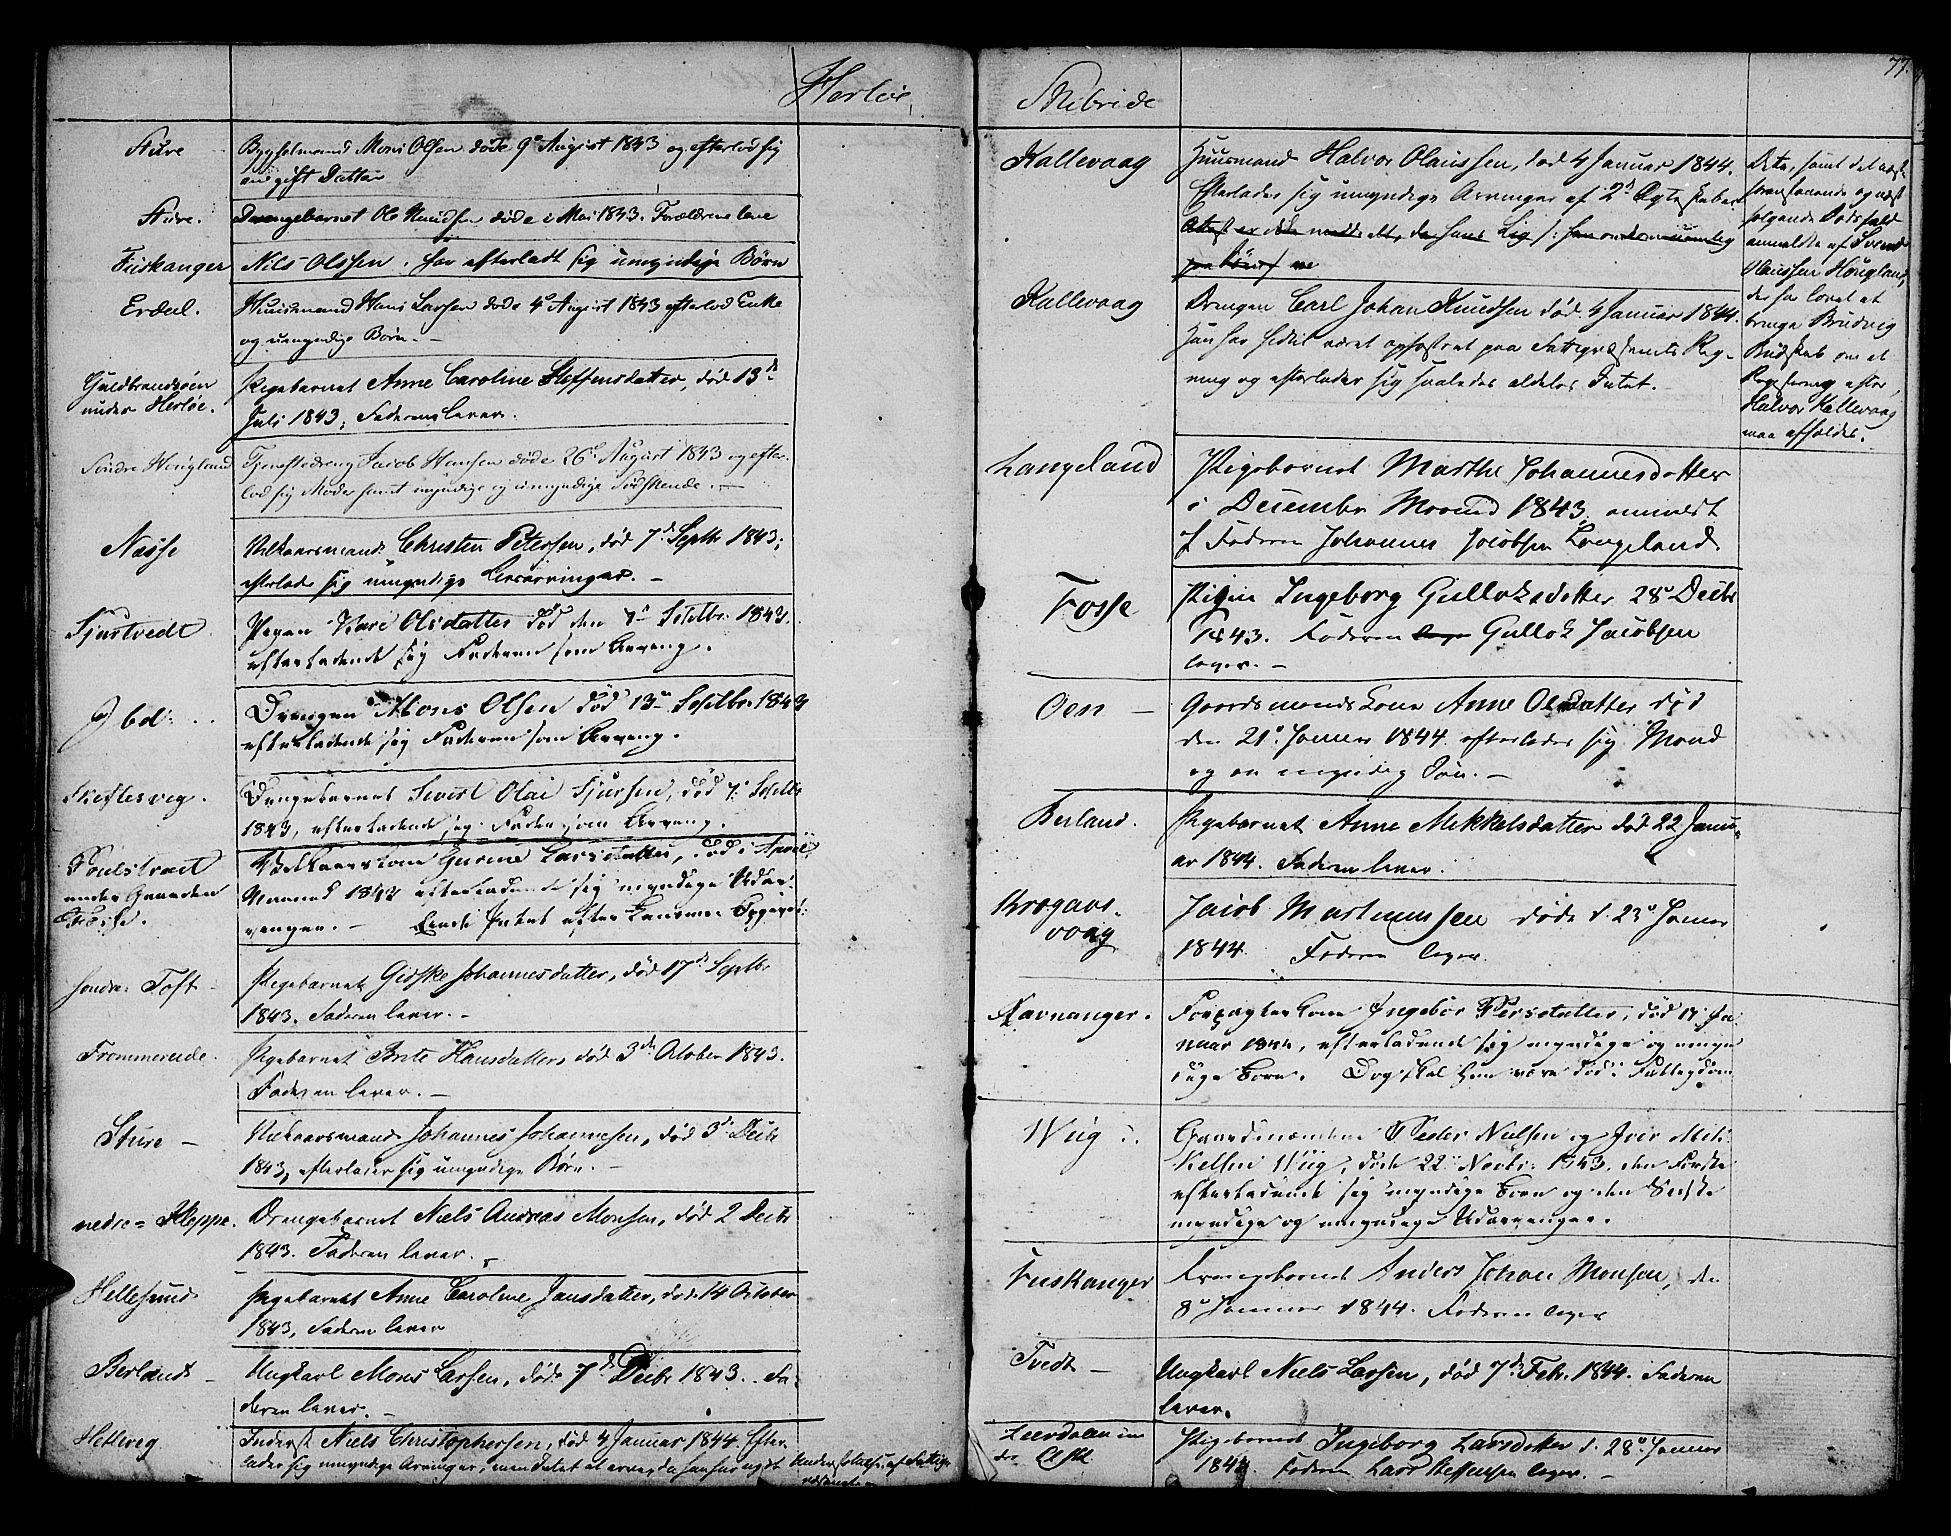 Herløe
Sture
Bygselmand Mons Olsen døde 9de August 1843 og efterlod sig
en gift Datter
Sture.
Drengebarnet Ole Knudsen døde i Mai 1843. Forældrene leve
Fuskanger
Nils Olssen, har efterladt sig umyndige Børn
Erdal.
Huusmand Hans Larsen døde 4de August 1843 efterlod Enke
og umyndige Børn. -
Guldbrandsøen
under Herløe.
Pigebarnet Anne Caroline Steffensdatter, død 13de
Juli 1843, Faderen lever.
Søndre Hougland
Tjenestedreng Jacob Hansen døde 26de August 1843 og efter-
lod sig Moder samt myndige og umyndige Sødskende. -
Næsse
Vilkaarsmand Christen Petersen, død 7de Septbr 1843;
efterlader sig umyndige Livsarvinger. -
Tjurtvedt.
Pigen Kari Olsdatter død den 8de Septbr. 1843.
efterladende sig Faderen som Arving.
Ibd:
Drengen Mons Olsen død 13de Septbr 1843
efterladende sig Faderen som Arving.
Skeflesvig.
Drengebarnet Sivert Olai Sjursen, død 7de Septbr
1843, efterladende sig Fader som Arving.
Poulstræet
under Gaarden
Fosse.
Vilkaarskone Gurine Larsdatter, død i April
Maaned 1842 efterladende sig myndige Udar-
vinger. - Eiede Intet efter Lensman
søndre Toft -
Pigebarnet Gidske Johannesdatter, død 17de Septbr
1843. Faderen lever. -
Frommereide.
Pigebarnet Brite Hansdatter, død 3de October 1843.
Faderen lever. -
Sture -
Vilkaarsmand Johannes Johannesen, død 3de Decbr
1843, efterlader sig umyndige Børn. -
nedre = Kleppe.
Drengebarnet Niels Andreas Monsen, død 2 Decbr
1843. Faderen lever. -
Hellesund
Pigebarnet Anne Caroline Jansdatter, døde 14 October
1843, Faderen lever
Berland -
Ungkarl Mons Larsen, døde 7de Decbr 1843. Fa-
deren lever. -
Hettevig
Inderst Niels Christophersen, død 4 Januar 1844. Efter-
lader sig umyndige Arvinger, men Intet at arve, da han har nydt
Understøttelse af Fattig-
væsenet -
77.
Skibride
Kallevaag
Huusmand Halvor Olaussen, død 4 Januar 1844.
Efterlader sig umyndige Arvinger af 2de Ægteskaber
Attest er ikke meddelt, da hans Lig
Dette, samt det næst
foranstaaende og næst
følgende Dødsfald
anmeldte af Svend
Hanssen Hougland,
der har lovet at
bringe Brudvig
Budskab om at
Registrering efter
Halvor Kallevaag
maa afholdes.
Kallevaag
Drengen Carl Johan Knudsen død 4 Januar 1844.
Han har hidtil været opfostret paa Fattigvæsenets Reg-
ning og efterlader sig saaledes aldeles Intet.
Langeland
Pigebarnet Marthe Johannesdatter
i December Maaned 1843 anmeldt
af Faderen Johannes Jacobsen Langeland.
Fosse
Pigen Ingeborg Gulloksdatter 28de Decbr
1843. Faderen Gullok Jacobsen
lever. -
Oen -
Gaardmandskone Anne Olsdatter død
den 21de Januar 1844. efterlader sig Mand
og en myndig Søn. -
Berland.
Pigebarnet Anne Mikkelsdatter død 22 Janu-
ar 1844. Faderen lever.
Krogaas-
vaag
Jacob Martinussen døde d. 23de Januar
1844. Faderen lever.
Ravnanger.
Forpagterkone Ingebor Persdatter, død 17 Ja-
nuar 1844, efterladende sig myndige og umyn-
dige Børn. Dog skal hun være død i Fattigdom
Wiig
Gaardmændene Peder Nielsen og Iver Mik-
kelsen Wiig, døde 22de Novbr: 1843. den Første
efterladende sig myndige Børn og den Sidste
myndige og umyndige Udarvinger.
Fuskanger
Drengebarnet Anders Johan Monsen, den
8de Januar 1844. Faderen lever
Tvedt -
Ungkarl Niels Larsen, død 7de Febr. 1844. Faderen
lever.
Leerdalen un-
der Ask
Pigebarnet Ingeborg Larsdatter d. 28de Januar
1844. Faderen Lars Steffensen lever. -